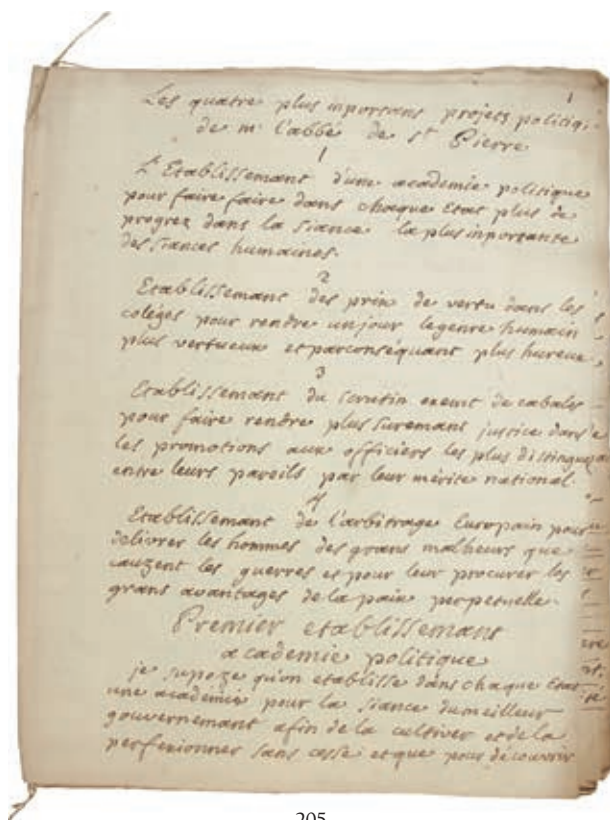 1
Les quatre plus inportans projets politiqu
de mr l'abbé de st Pierre
1
L'Etablissemant d'une academie politique
pour faire faire dans chaque Etat plus de
progrez dans la siance la plus inportante
des siances humaines.
2
Etablissemant des prix de vertu dans les
coléges pour rendre un jour le genre humain
plus vertueux et par conséquant plus hureux
3
Etablissemant du scrutin exemt de cabales
pour faire rendre plus suremant justice dans
les promotions aux officiers les plus distinguez
entre leurs pareils par leur mérite national.
4
Etablissemant de l'arbitrage Europain pour
delivrer les hommes des grans malheurs que
cauzent les guerres et pour leur procurer les
grans avantages de la paix perpetuelle.
Premier etablissemant
academie politique
je supoze qu'on etablisse dans chaque Etat
une academie pour la siance du meilleur
gouvernemant afin de la cultiver et de la
perfexionner sans cesse et que pour découvrir
205